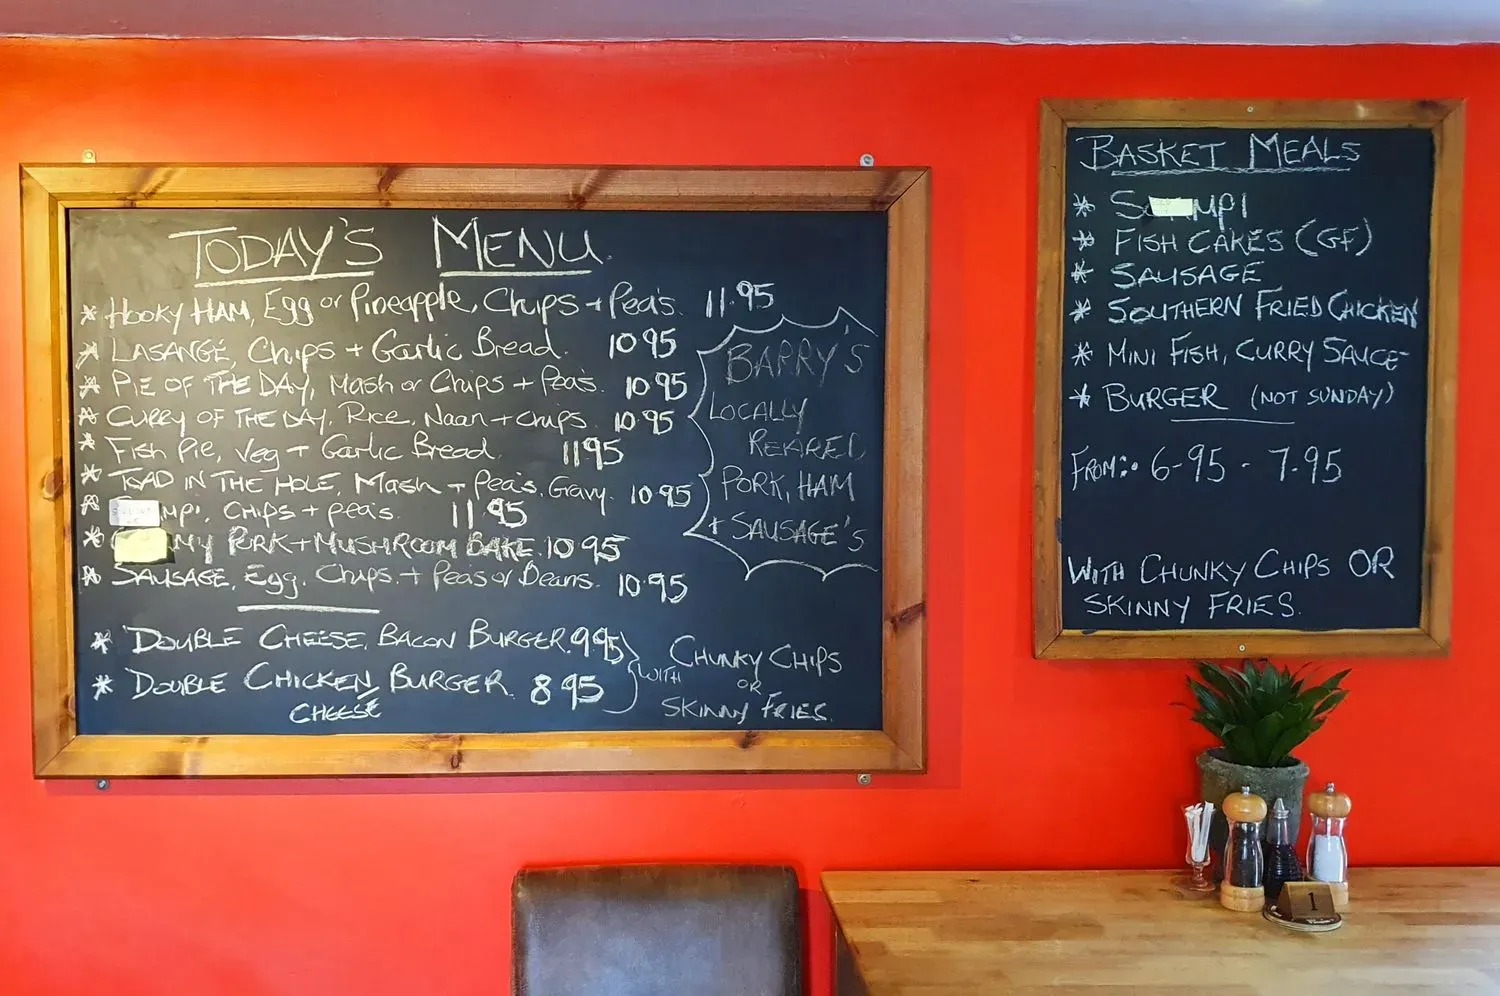 TODAY'S MENU.
* HOOKY HAM, Egg or Pineapple, Chips + Pea's. 11.95
* LASANGE, Chips + Garlic Bread. 10 95
* PIE OF THE DAY, Mash or Chips + Pea's. 10.95
* CURRY OF THE DAY. Rice, Naan + chips. 10.95
* Fish Pie, Veg + Garlic Bread. 11 95
* TOAD IN THE HOLE, Mash + Pea's, Gravy. 10.95
* MPI, CHIPS + pea's. 11 95
* MY PORK + MUSHROOM BAKE. 10 95
* SAUSAGE, Egg, Chips + Peas or Beans. 10.95
* DOUBLE CHEESE, BACON BURGER. 9.95
* DOUBLE CHICKEN BURGER. 8 95
CHEESE
WITH CHUNKY CHIPS
OR
SKINNY FRIES.
BARRY'S
LOCALLY
REARED,
PORK, HAM
+ SAUSAGE'S
BASKET MEALS
* S MPI
* FISH CAKES (GF)
* SAUSAGE
* SOUTHERN FRIED CHICKEN
* MINI FISH, CURRY SAUCE
* BURGER (NOT SUNDAY)
FROM:. 6-95 - 7.95
WITH CHUNKY CHIPS OR
SKINNY FRIES.
1